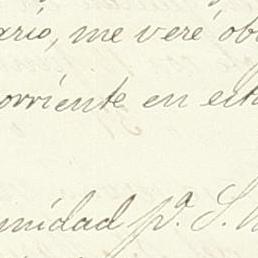 ario, me veré ob
orriente en esta
midad pª. S.